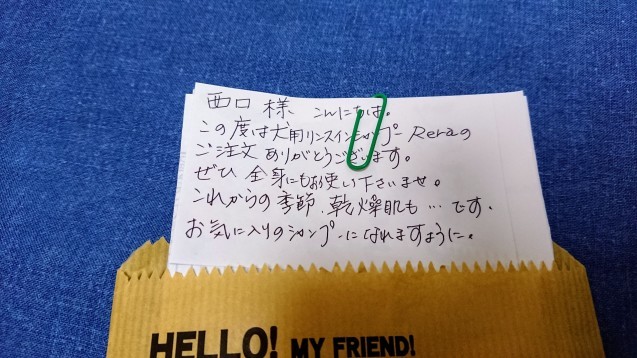 西口 様、こんにちは。
この度は犬用リンスインシャンプー Reraの
ご注文ありがとうございます。
ぜひ 全身にもお使い下さいませ。
これからの季節、乾燥肌も…です。
お気に入りのシャンプーになれますように。
HELLO! MY FRIEND!